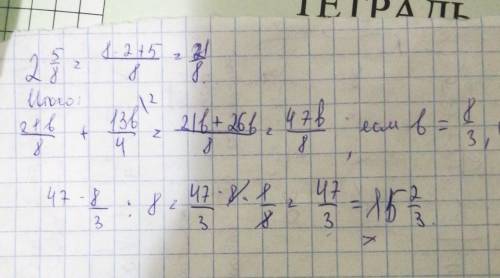 ТЕТРАДЬ
2 5/8 = (8·2+5)/8 = 21/8.
Итого:
21b/8 + 13b/4 \2 = (21b+26b)/8 = 47b/8 ; если b = 8/3,
47·8/3 : 8 = 47/3 · 8 · 1/8 = 47/3 = 15 2/3.